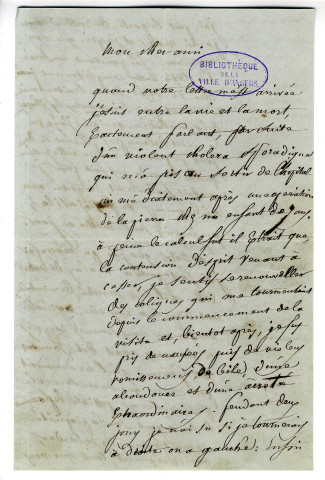 Mon cher ami
BIBLIOTHÈQUE
DE LA
VILLE D'ANGERS
quand votre lettre m'est arrivée
j'étais entre la vie et la mort,
exactement parlant, par suite
d'un violent cholera sporadique
qui m'a pris au sortir de l'hôpital
immédiatement après une opération
de la pierre chez un enfant de
à peine le calcul fut il extrait que
la contension d'esprit venant à
cesser, je sentis se renouveller
des coliques qui me tourmentaient
depuis le commencement de la
visite et, bientot après, je fus
pris de nausées puis de violens
vomissemens de bile, d'une
abondance et d'une acreté
extraordinaires. pendant deux
jours je n'ai su si je tournerais
à droite ou à gauche: Enfin